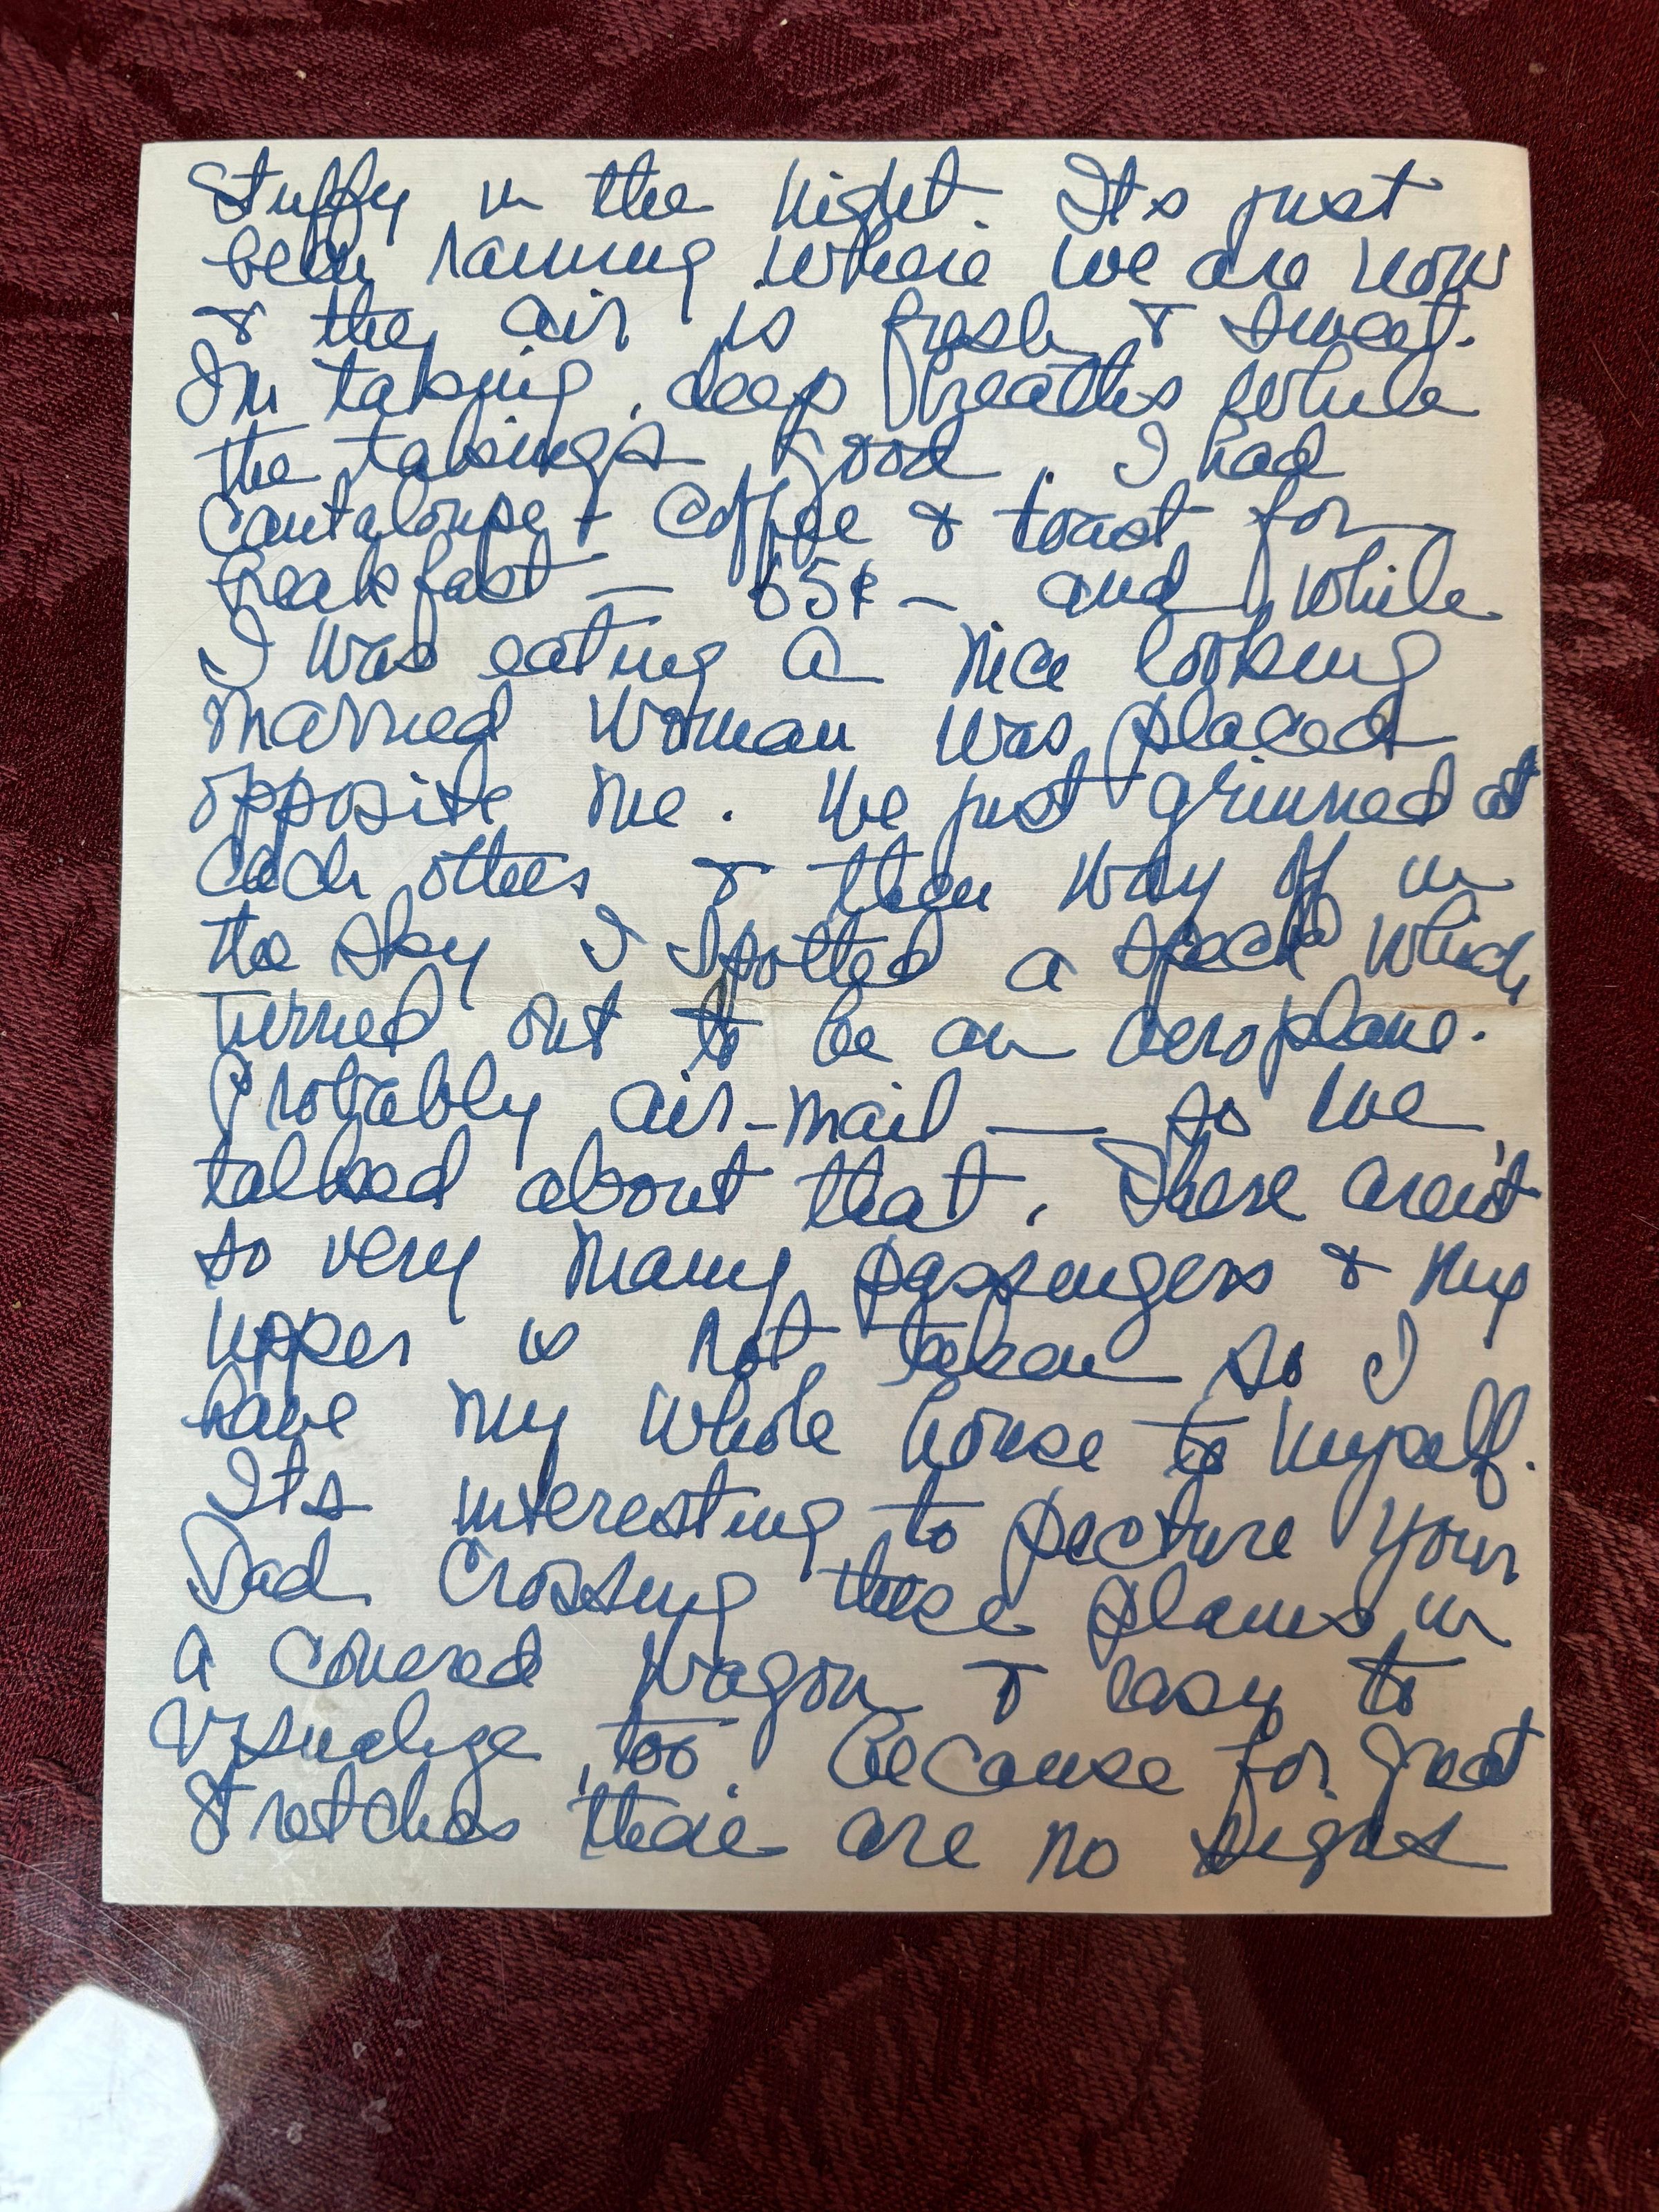 Stuffy in the night. Its just
been raining where we are now
& the air is fresh & sweet.
I'm taking deep breaths while
the taking's good. I had
cantaloupe + coffee & toast for
breakfast — 65¢ — and while
I was eating a nice looking
married woman was placed
opposite me. We just grinned at
each other & then way off in
the sky I spotted a speck which
turned out to be an aeroplane.
Probably air-mail — so we
talked about that. There aren't
so very many passengers & my
upper is not taken so I
have my whole house to myself.
Its interesting to picture your
Dad crossing these plains in
a covered wagon & easy to
visualize, too. Because for great
stretches there are no signs